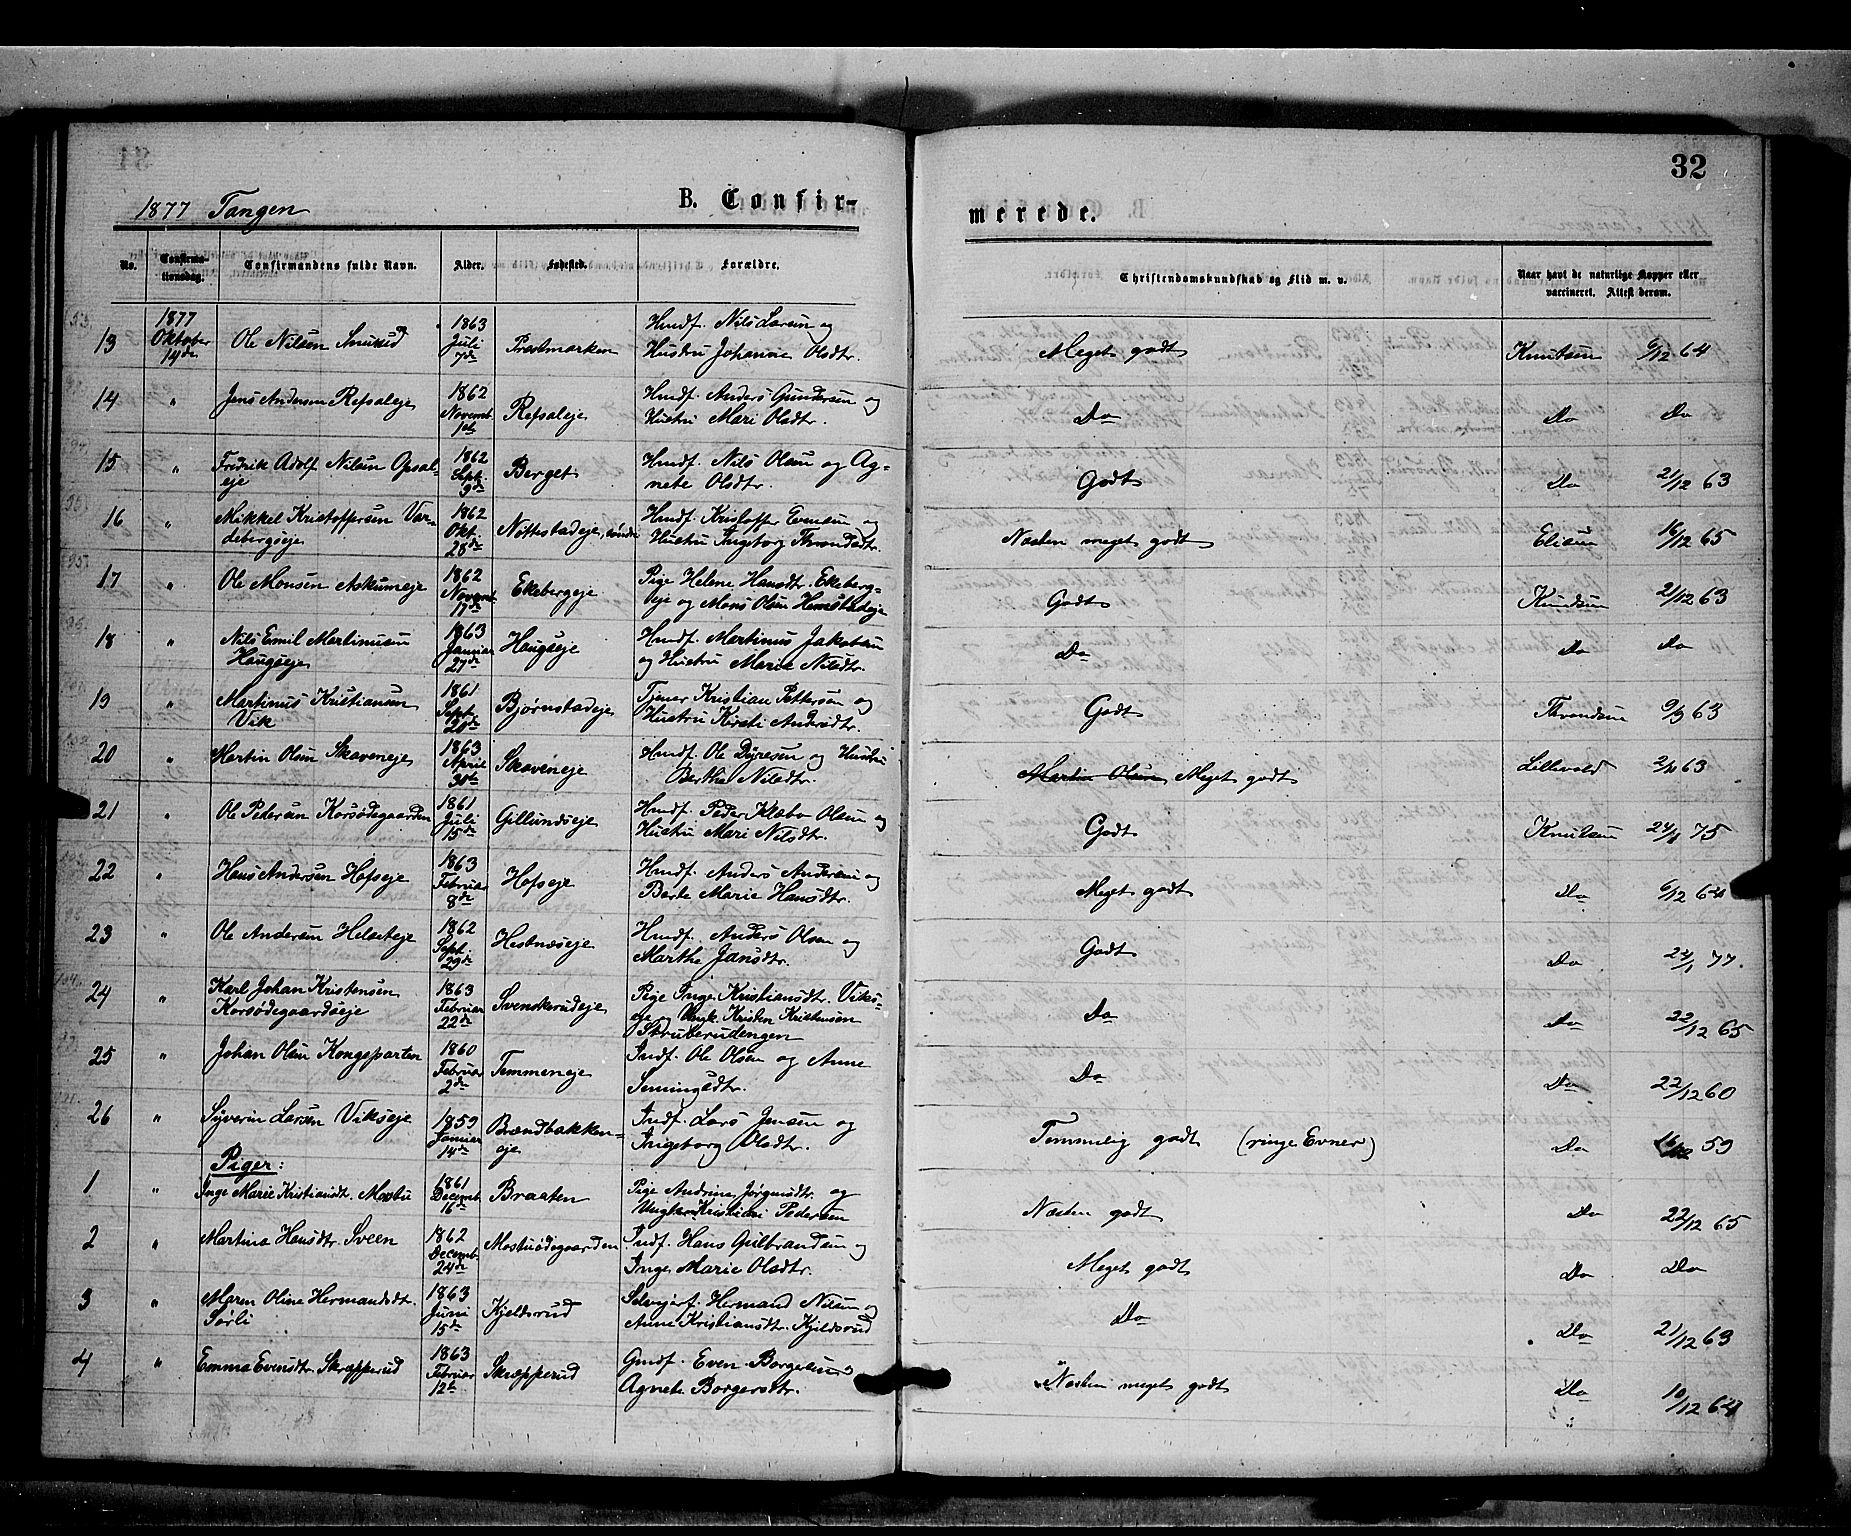 32
1877 Tangen
B. Confir-
merede.
No.
Confirma-
tionsdag.
Confirmandens fulde Navn.
Alder.
Fødested.
Forældre.
Christendomskundskab og Flid m. v.
Naar havt de naturlige Kopper eller
vaccineret. Attest derom.
13 1877 Oktober 14de Ole Nilsen 1863 Juli 7de Præstmarken Husmf. Nils Larsen og
Hustru Johanne Olsdtr. Meget godt Knutsen 6/12 64
14 " Jens Andersen Refsaleje 1862 Novemb. 1ste Refsaleje Husmf. Anders Gundersen og
Hustru Mari Olsdtr. Do Do Do
15 " Fredrik Adolf Nilsen Opsal-
eje 1862 Sept. 9de Berget Husmf. Nils Olsen og Ag-
nete Olsdtr. Godt Do 21/12 63
16 " Mikkel Kristoffersen Var-
debergseje 1862 Okt. 28de Nøttestadeje, søndre Husmf. Kristoffer Evensen og
Hustru Ingeborg Throndsdtr. Næsten meget godt Eliesen 16/12 65
17 " Ole Monsen Askumeje 1862 Novemb. 17de Ekebergeje Pige Helene Hansdtr. Ekeberg-
eje og Mons Olsen Hemstadeje Godt Knudsen 21/12 63
18 " Nils Emil Martinusen
Haugseje 1863 Januar 27de Haugseje Husmf. Martinus Jakobsen
og Hustru Marie Nilsdtr. Do Do Do
19 " Martinus Kristiansen
Vik 1861 Sept. 20de Bjørnstadeje Tjener Kristian Pettersen og
Hustru Kirsti Andersdtr. Godt Throndsen 9/9 63
20 " Martin Olsen Skaveneje 1863 April 30te Skaveneje Husmf. Ole Dyresen og Hustru
Berthe Nilsdtr. Martin Olsen Meget godt Lillevold 63
21 " Ole Pedersen Korsødegaarden 1861 Juli 15de Gillundseje Husmf. Peder Klæbo Olsen og
Hustru Mari Nilsdtr. Godt Knutsen 75
22 " Hans Andersen Hofseje 1863 Februar 8de Hofseje Husmf. Anders Andersen og
Berte Marie Hansdtr. Meget godt Do 6/12 64
23 " Ole Andersen Helseteje 1862 Sept. 29de Hestnæseje Husmf. Anders Olsen og
Marthe Jansdtr. Godt Do 24/1 77.
24 " Karl Johan Kristensen
Korsødegaardseje 1863 Februar 22de Svenskerudeje Pige Inge Kristiansdtr. Viks-
eje og Ungk. Kristen Kristensen
Skruberudengen Do Do 22/12 65
25 " Johan Olsen Kongsparten 1860 Februar 2de Temmeneje Indf. Ole Olsen og Anne
Semingsdtr. Do Do 22/12 60
26 " Syverin Larsen Vikseje 1859 Januar 14de Brændbakken-
eje Indf. Lars Jensen og
Ingeborg Olsdtr. Temmelig godt (ringe Evner) Do 59
Piger:
1 " Inge Marie Kristiansdt. Mostu 1861 Decemb. 16de Braaten Pige Andrine Jørgensdtr. og
Ungkar Kristian Pedersen Næsten godt Do 22/12 65
2 " Martina Hansdtr. Sveen 1862 Decemb. 24de Mostuødegaarden Indf. Hans Gulbrandsen og
Inge Marie Olsdtr. Meget godt Do Do
3 " Maren Oline Hermandsdt.
Sørli 1863 Juni 15de Kjeldsrud Selvejerf. Hermand Nilsen og
Anne Kristiansdtr. Kjeldsrud Do Do 21/12 63
4 " Emma Evensdtr. Skræpperud 1863 Februar 12te Skræpperud Gmdf. Even Borgersen
Agnete Borgersdtr. Næsten meget godt Do 10/12 64